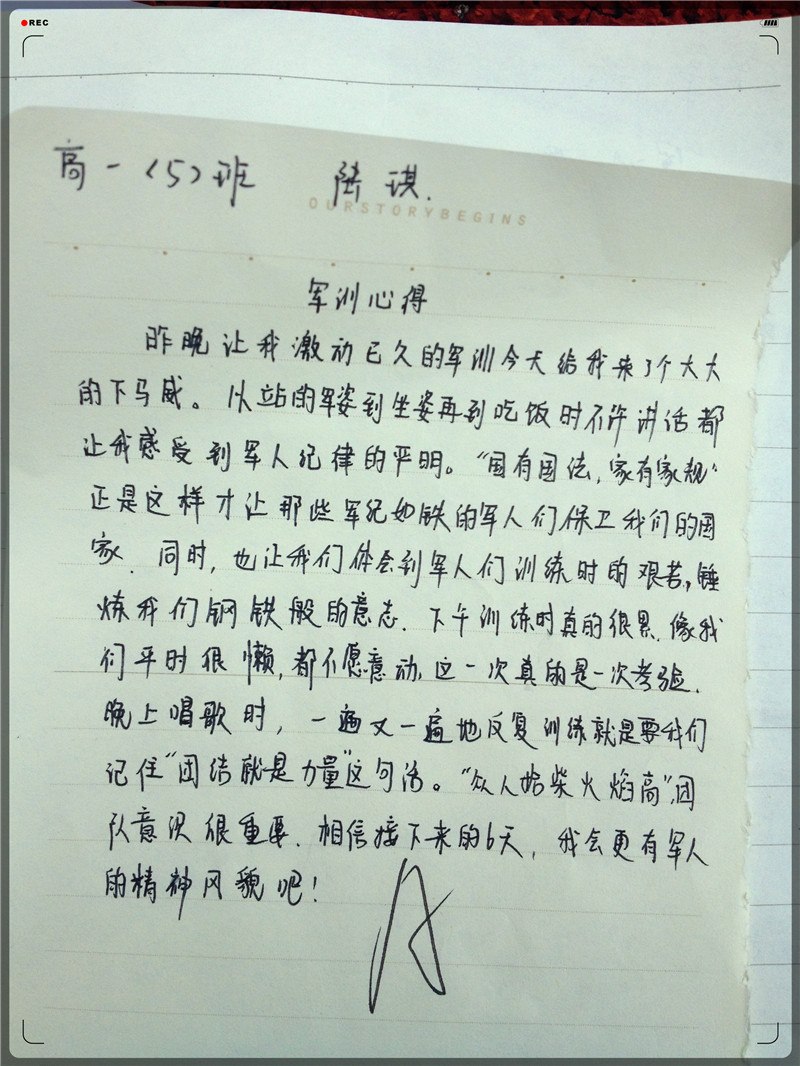 REC
高一（5）班 陆琪.
OURSTORYBEGINS
军训心得
昨晚让我激动已久的军训今天给我来了个大大
的下马威。从站的军姿到坐姿再到吃饭时不许讲话都
让我感受到军人纪律的严明。“国有国法，家有家规”
正是这样才让那些军纪如铁的军人们保卫我们的国
家.同时，也让我们体会到军人们训练时的艰苦，锤
炼我们钢铁般的意志.下午训练时真的很累.像我
们平时很懒，都不愿意动，这一次真的是一次考验.
晚上唱歌时，一遍又一遍地反复训练就是要我们
记住“团结就是力量”这句话。“众人拾柴火焰高”，团
队意识很重要.相信接下来的6天，我会更有军人
的精神风貌吧！
A